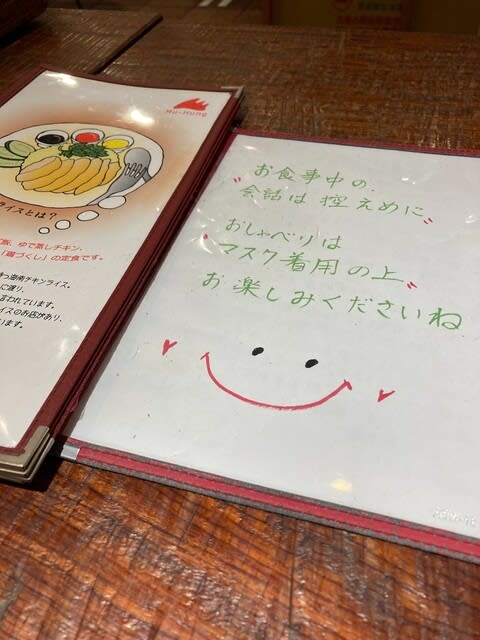 Mu-Hung
イスとは?
飯、ゆで蒸しチキン、
「鶏づくし」の定食です。
つ海南チキンライス。
に渡り、
言われています。
イスのお店があり、
います。
お食事中の、
"会話は控えめに"
おしゃべりは
"マスク着用の上"
お楽しみくださいね